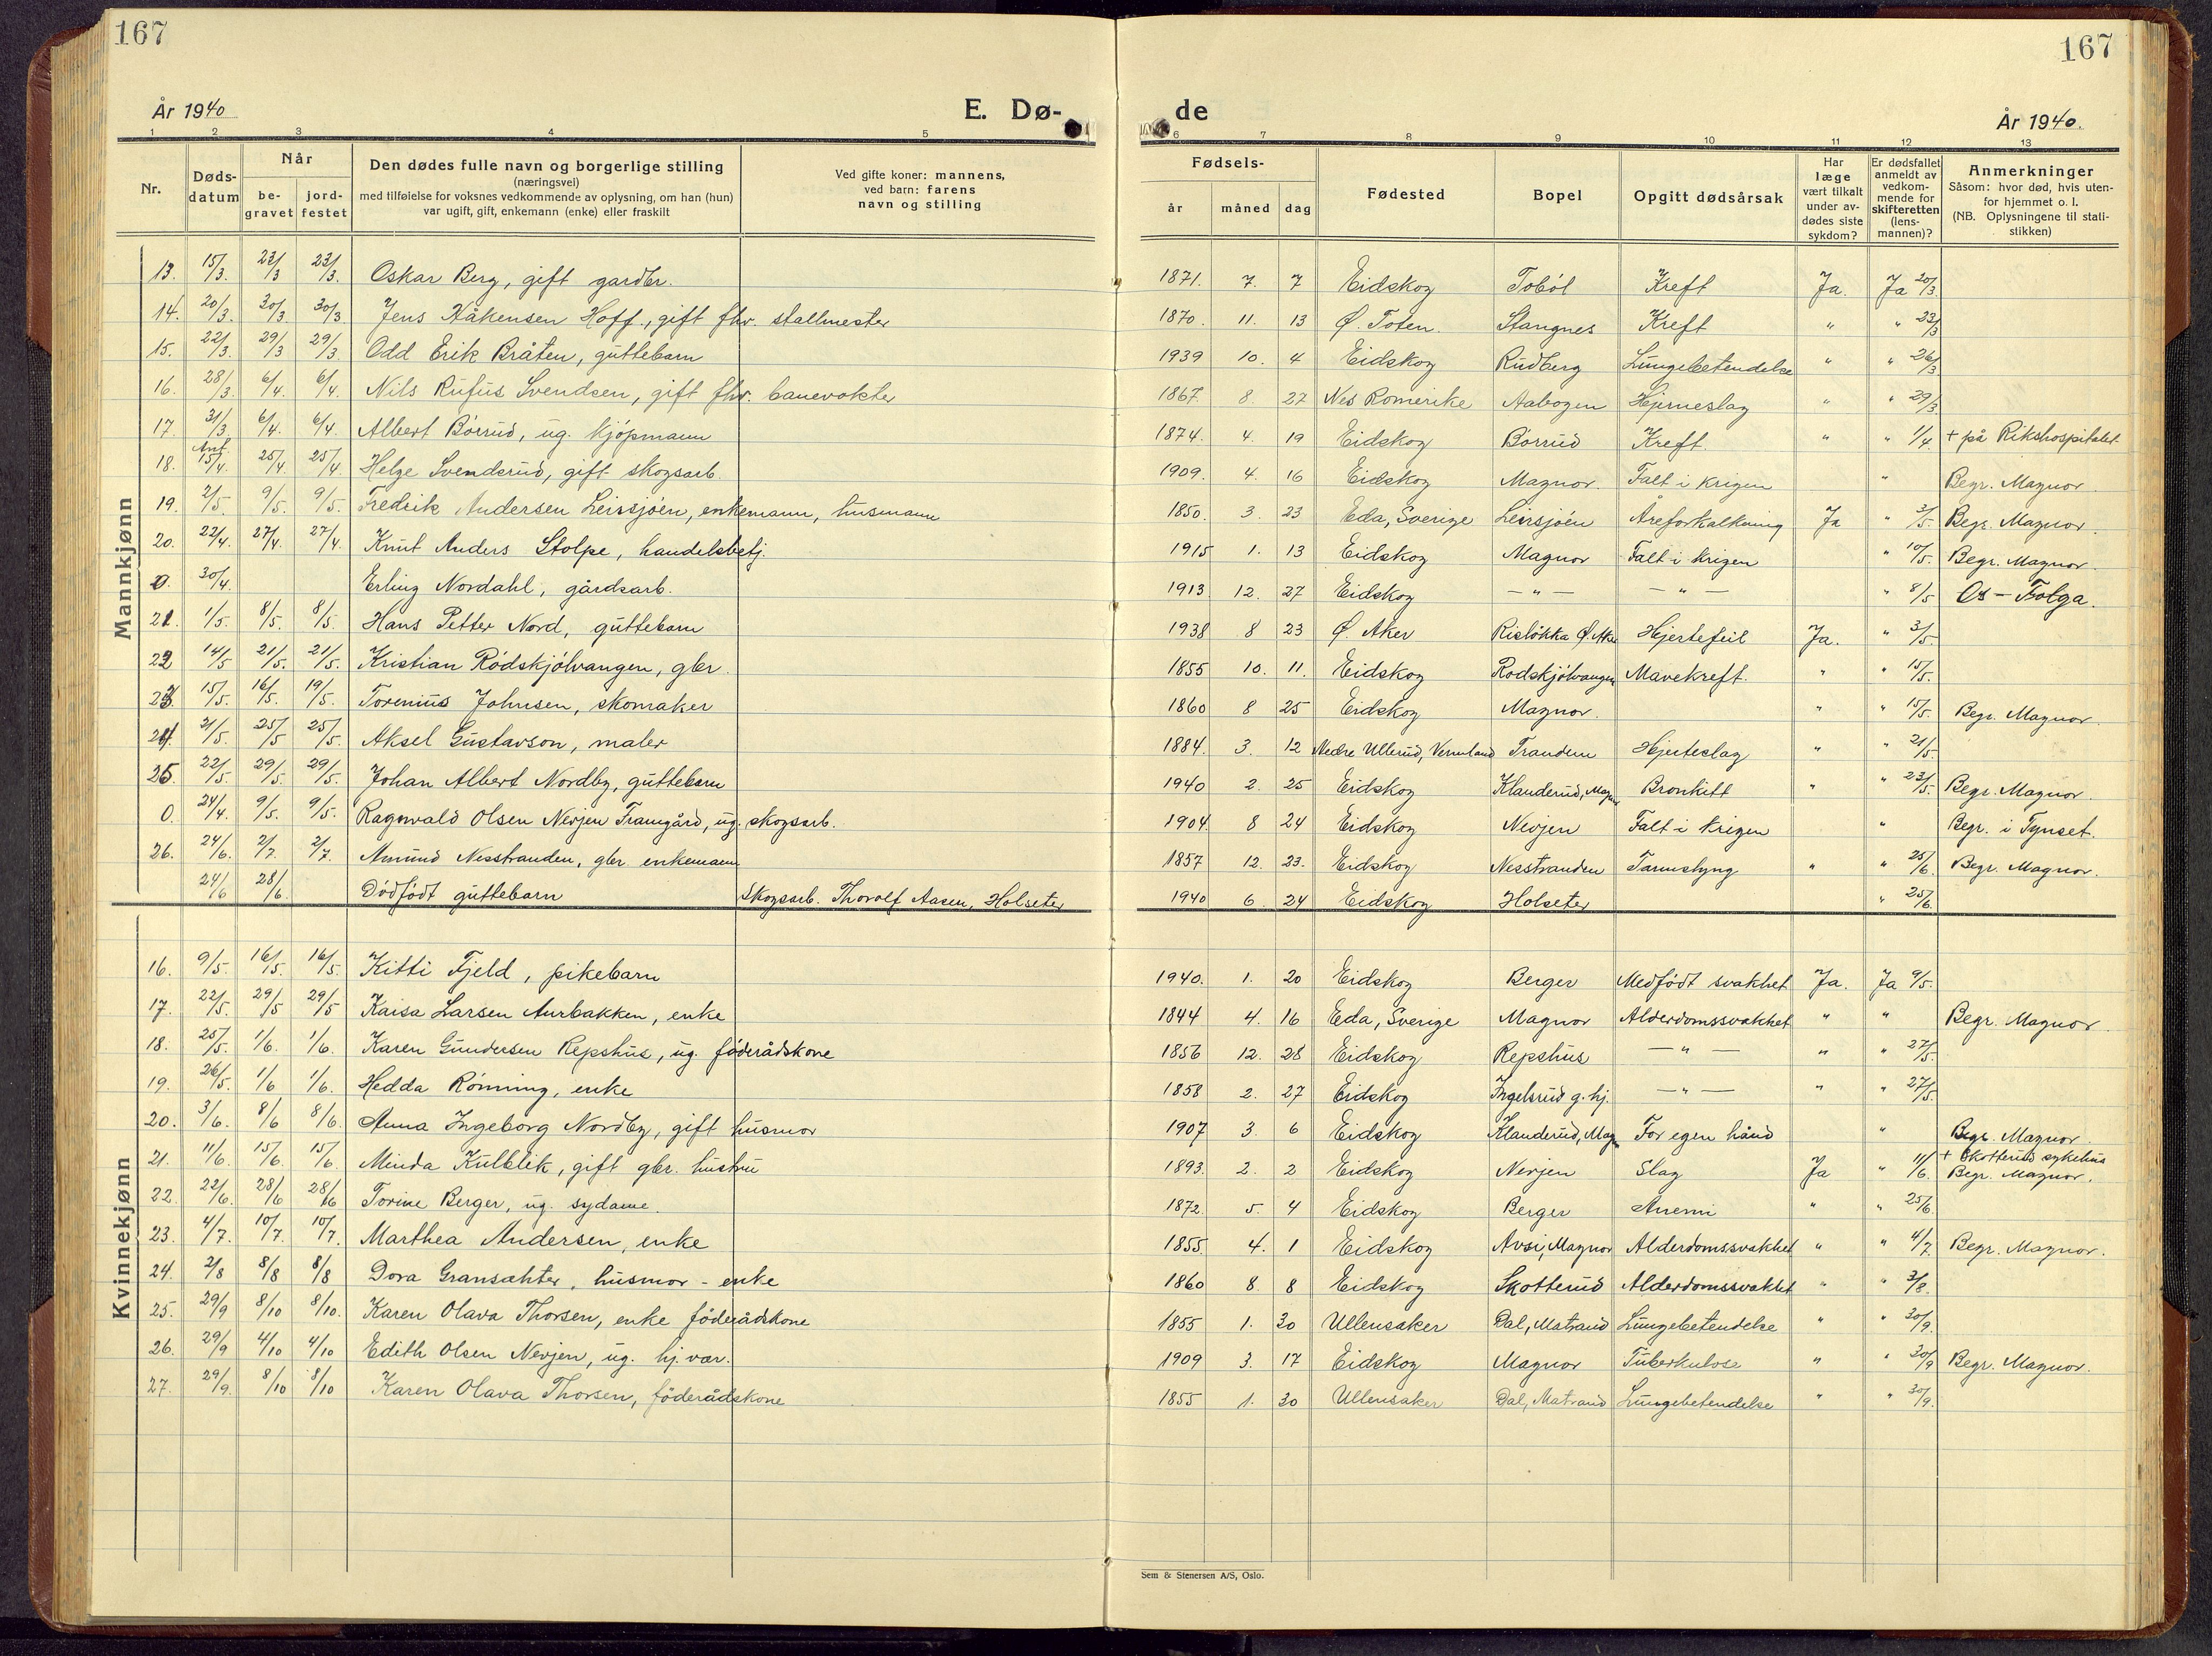 167
167
År 1940
E. Dø-
de
År 1940.
1 2 3 4 5 6 7 8 9 10 11 12 13
Nr.
Døds-
datum
Når
be-
gravet
jord-
festet
Den dødes fulle navn og borgerlige stilling
(næringsvei)
med tilføielse for voksnes vedkommende av oplysning, om han (hun)
var ugift, gift, enkemann (enke) eller fraskilt
Ved gifte koner: mannens,
ved barn: farens
navn og stilling
Fødsels-
år måned dag
Fødested
Bopel
Opgitt dødsårsak
Har
læge
vært tilkalt
under av-
dødes siste
sykdom?
Er dødsfallet
anmeldt av
vedkom-
mende for
skifteretten
(lens-
mannen)?
Anmerkninger
Såsom: hvor død, hvis uten-
for hjemmet o. l.
(NB. Oplysningene til stati-
stikken)
Mannkjønn
13. 15/3. 23/3 23/3. Oskar Berg, gift gardbr. 1871. 7. 7 Eidskog Tobøl Kreft Ja. Ja 20/3.
14. 20/3. 30/3 30/3 Jens Håkensen Hoff., gift fhv. stallmester 1870. 11. 13 Ø. Toten. Stangnes Kreft " " 23/3
15. 22/3. 29/3 29/3. Odd Erik Bråten, guttebarn 1939 10. 4 Eidskog Rudberg Lungebetendelse " " 26/3
16. 28/3 6/4. 6/4. Nils Rufus Svendsen, gift fhv. banevokter 1867. 8. 27 Nes Romerike Aabogen Hjerneslag " " 29/3
17. 31/3 6/4. 6/4. Albert Børrud, ug. kjøpmann 1874. 4. 19 Eidskog Børrud Kreft. " " 1/4 + på Rikshospitalet.
18. Ant. 15/4. 25/4 25/4 Helge Svendsrud, gift skogsarb. 1909. 4. 16 Eidskog Magnor. Falt i krigen " Begr. Magnor.
19. 2/5. 9/5. 9/5. Fredrik Andersen Leirsjøen, enkemann, husmann 1850. 3. 23 Eda, Sverige Leirsjøen Åreforkalkning Ja " 3/5. Begr. Magnor.
20. 22/4. 27/4. 27/4 Knut Anders Stolpe, handelsbetj. 1915 1. 13 Eidskog Magnor Falt i krigen " 10/5. Begr. Magnor.
0. 30/4. Erling Nordahl, gårdsarb. 1913 12. 27 Eidskog — " — — " — " 8/5 Os - Tolga.
21. 1/5. 8/5. 8/5. Hans Petter Nord, guttebarn 1938 8 23 Ø. Aker Risløkka Ø. Aker Hjertefeil Ja. " 3/5.
22 14/5 21/5. 21/5. Kristian Rødskjølvangen, gbr. 1855 10. 11. Eidskog Rødskjølvangen Mavekreft. " " 15/5.
23. 15/5. 16/5. 19/5. Torenius Johnsen, skomaker 1860 8 25 Eidskog Magnor. " " 15/5. Begr. Magnor.
24. 21/5. 25/5 25/5. Aksel Gustavson, maler 1884. 3. 12 Nedre Ullerud, Vermland Tranden Hjerteslag " " 21/5.
25. 22/5. 29/5. 29/5. Johan Albert Nordby, guttebarn 1940 2. 25 Eidskog Klanderud, Magnor Bronkitt " " 23/5. Begr. Magnor.
0. 24/4. 9/5. 9/5. Ragnvald Olsen Nevjen Framgård, ug. skogsarb. 1904. 8 24 Eidskog Nevjen Falt i krigen " Begr. i Tynset.
26. 24/6. 2/7. 2/7. Amund Nesstranden, gbr. enkemann 1857 12. 23. Eidskog Nesstranden Tarmslyng " " 25/6 Begr. Magnor.
24/6 28/6. Dødfødt guttebarn Skogsarb. Thorolf Aasen, Holseter 1940 6. 24 Eidskog Holseter " 25/6.
Kvinnekjønn
16. 9/5. 16/5. 16/5. Kitti Fjeld, pikebarn 1940. 1. 20 Eidskog Berger Medfødt svakhet Ja. Ja 9/5.
17. 22/5. 29/5 29/5 Kaisa Larsen Aurbakken, enke 1844 4. 16 Eda, Sverige Magnor Alderdomssvakhet " " Begr. Magnor.
18. 25/5. 1/6. 1/6. Karen Gundersen Repshus, ug. føderådskone 1856 12. 28 Eidskog Repshus — " — " " 27/5.
19. 26/5. 1/6 1/6. Hedda Rønning, enke 1858 2. 27 Eidskog Ingelsrud g. hj. — " — " " 27/5.
20. 3/6. 8/6 8/6. Anna Ingeborg Nordby, gift husmor 1907 3. 6 Eidskog Klanderud, Mag. For egen hånd " Begr. Magnor.
21. 11/6. 15/6. 15/6. Minda Kulblik, gift gbr. hustru 1893. 2. 2 Eidskog Nevjen Slag Ja " 11/6. + Skotterud sykehus
Begr. Magnor.
22. 22/6. 28/6 28/6 Torine Berger, ug. sydame. 1872. 5. 4 Eidskog Berger Anemi " " 25/6.
23. 4/7. 10/7. 10/7. Marthea Andersen, enke 1855. 4. 1 Eidskog Avsi, Magnor Alderdomssvakhet " " 4/7 Begr. Magnor.
24. 2/8 8/8 8/8 Dora Gransæhter, husmor - enke 1860 8. 8 Eidskog Skotterud Alderdomssvakhet " " 3/8.
25. 29/9 8/10 8/10. Karen Olava Thorsen, enke føderådskone 1855 1. 30 Ullensaker Dal, Matrand Lungebetendelse " " 30/9.
26. 29/9 4/10 4/10 Edith Olsen Nevjen, ug. hj. vær. 1909 3. 17 Eidskog Magnor Tuberkulose " " 30/9 Begr. Magnor.
27. 29/9. 8/10 8/10 Karen Olava Thorsen, føderådskone 1855 1. 30 Ullensaker Dal, Matrand Lungebetendelse " " 30/9.
Sem & Stenersen A/S, Oslo.